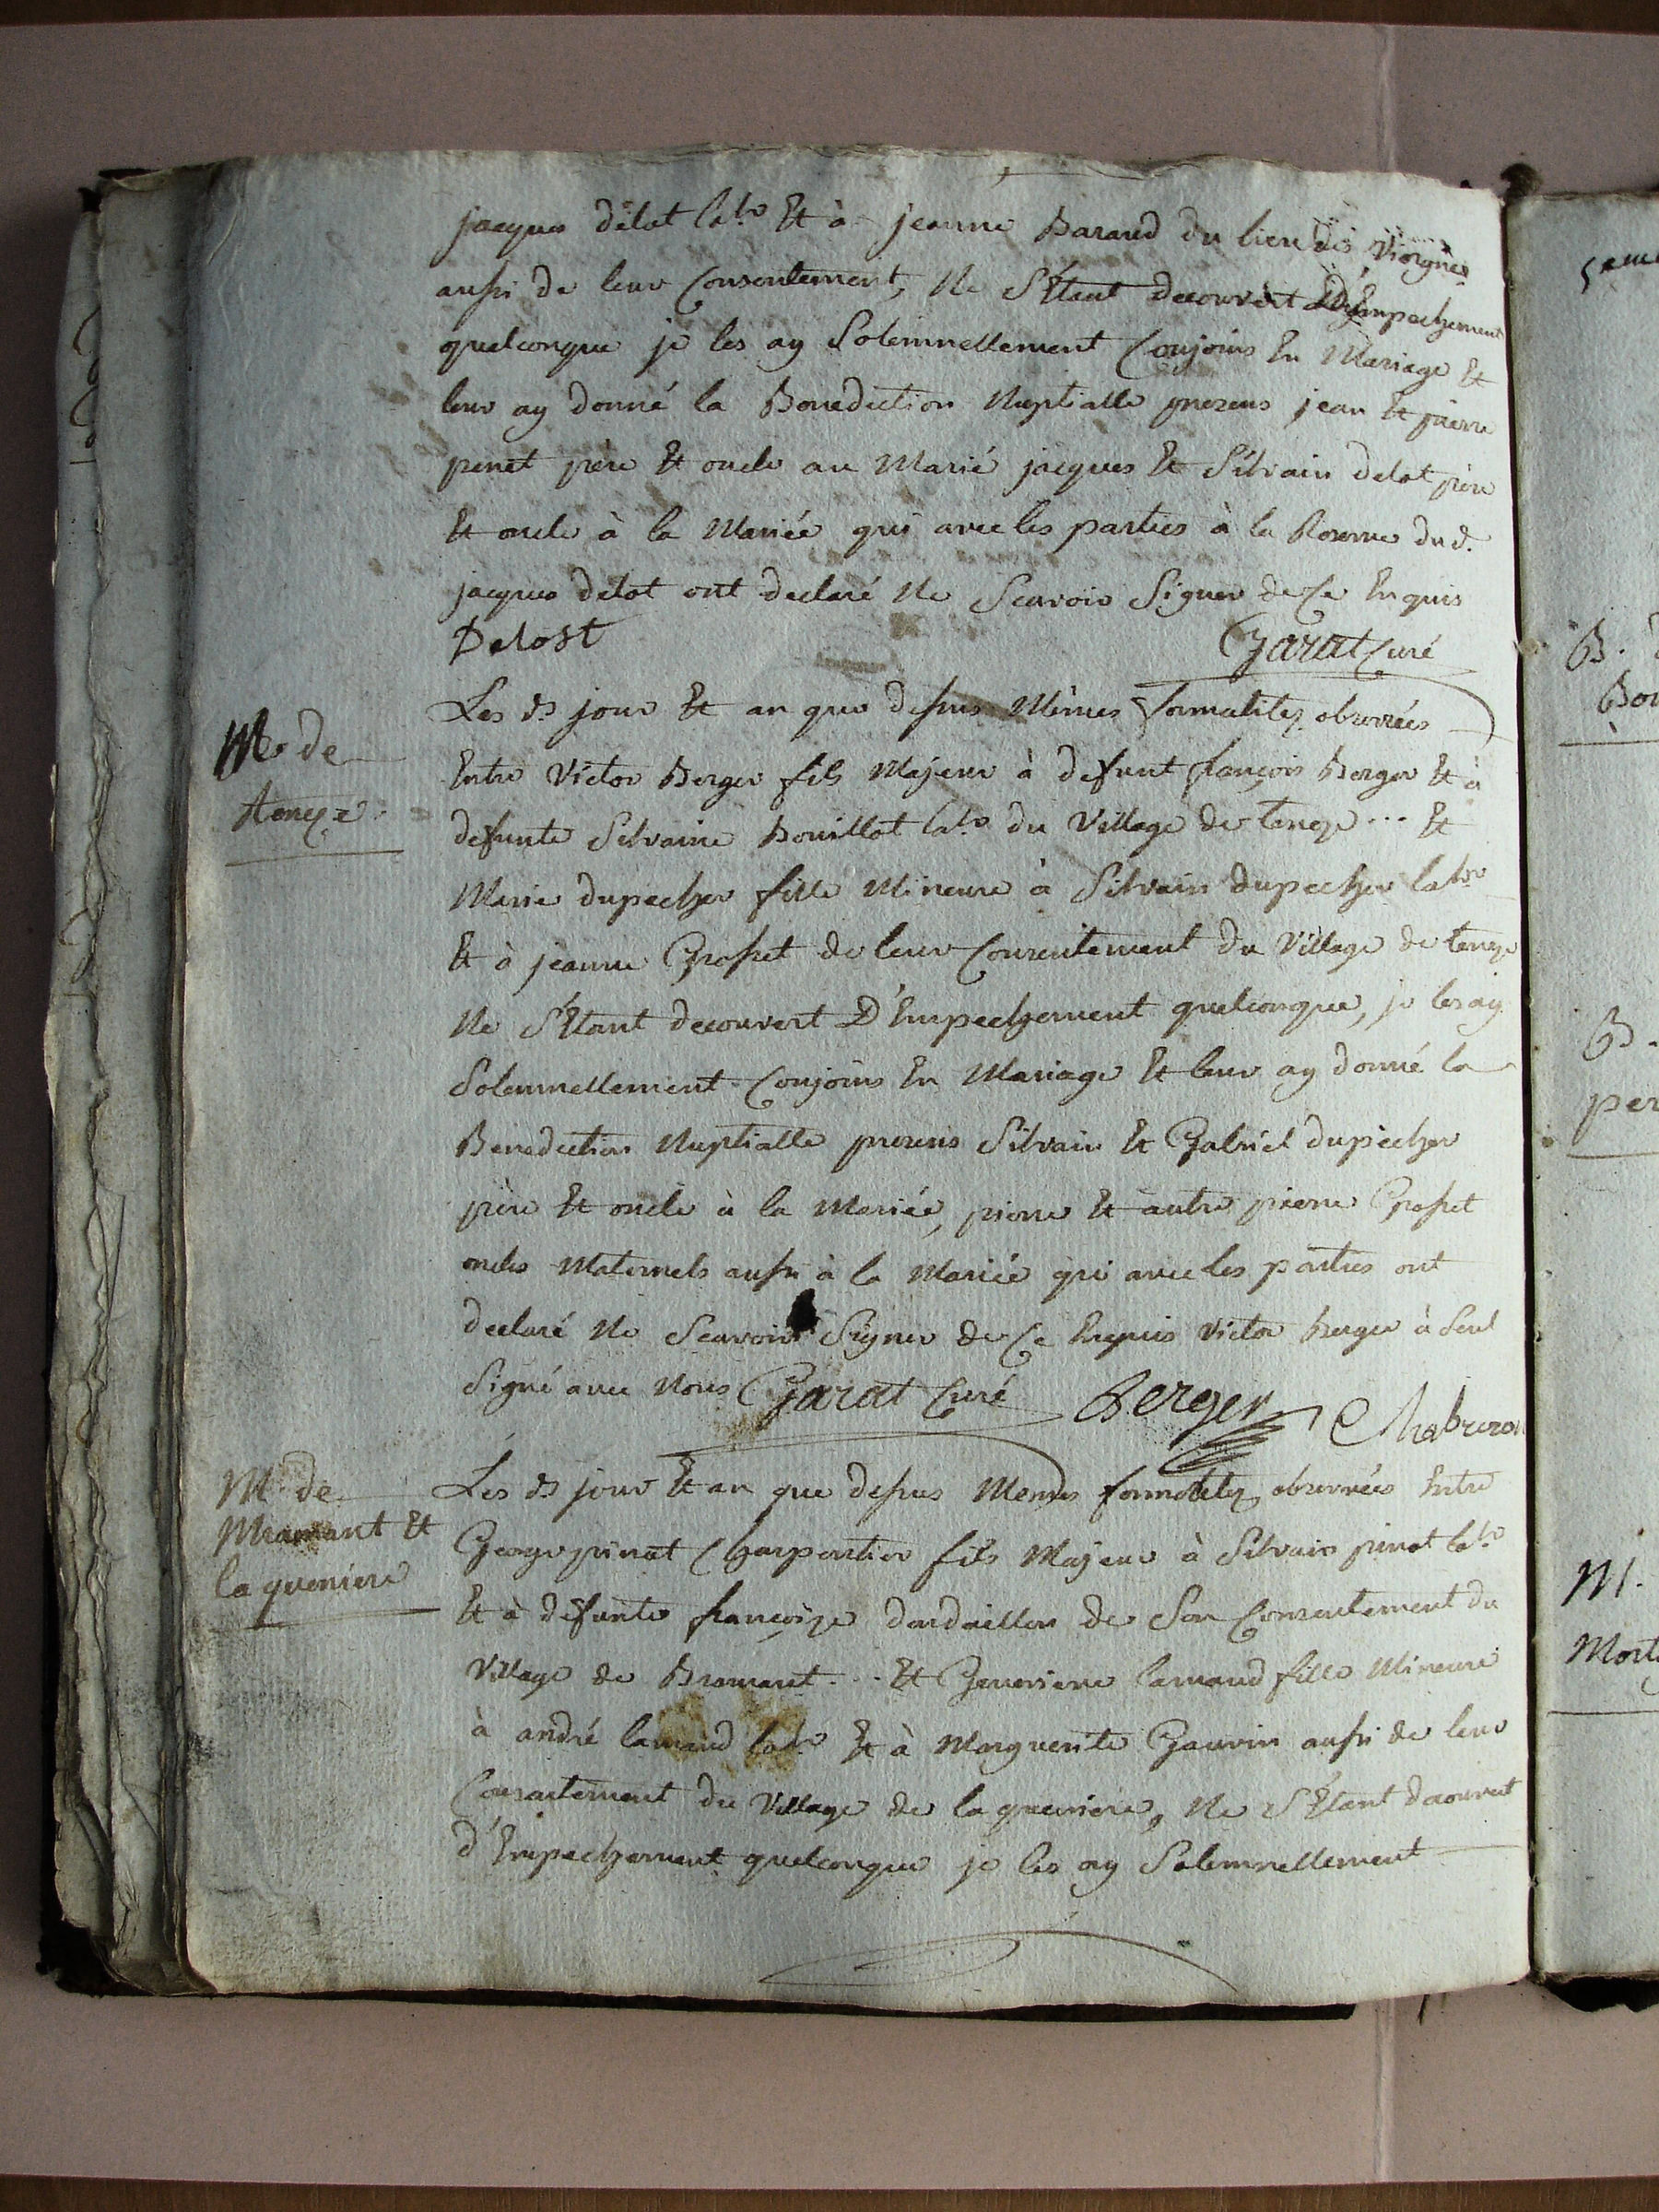 jacques délot labr Et à jeanne Baraud du lieu des Viorgnes
aussi de leur Consentement, Ne S'Etant decouvert D'Empechement
quelconque je les ay Solemnellement Conjoins En Mariage Et
leur ay donné la Benediction Nuptialle presens jean Et pierre
penet père Et oncle au Marié jacques Et Silvain delot père
Et oncle à la Mariée qui avec les parties à la Reserve dud.
jacques delot ont declaré Ne Scavoir Signer de Ce Enquis
Delost Garat Curé
M. de
teneze
Les ds jour Et an que dessus Mêmes formalitez observées
Entre Victor Berger fils Majeur à defunt françois Berger Et à
defunte Silvaine Bouillot labr du Village de teneze ... Et
Marie dupecher fille Mineure à Silvain dupecher labr
Et à jeanne Grosset de leur Consentement du Village de teneze
Ne S'Etant decouvert D'Empechement quelconque, je les ay
Solemnellement Conjoins En Mariage Et leur ay donné la
Benediction Nuptialle presens Silvain Et Gabriel dupêcher
père Et oncle à la Mariée, pierre Et autre pierre Grosset
oncles Maternels aussi à la Mariée qui avec les parties ont
declaré Ne Scavoir Signer de Ce Enquis Victor Berger à Seul
Signé avec Nous Garat Curé Berger Chabrero
M. de
et
la queniere
Les ds jour Et an que dessus Memes formalitez observées Entre
George pinet Charpentier fils Majeur à Silvain pinet labr
Et à defunte françoize dardaillon de Son Consentement du
Village de Bramaret ... Et Geneviene lamaud fille Mineure
à andré lamaud labr Et à Marguerite Gauvin aussi de leur
Consentement du Village de la queniere, Ne S'Etant decouvert
d'Empechement quelconque je les ay Solemnellement
B.
B.
per
M.